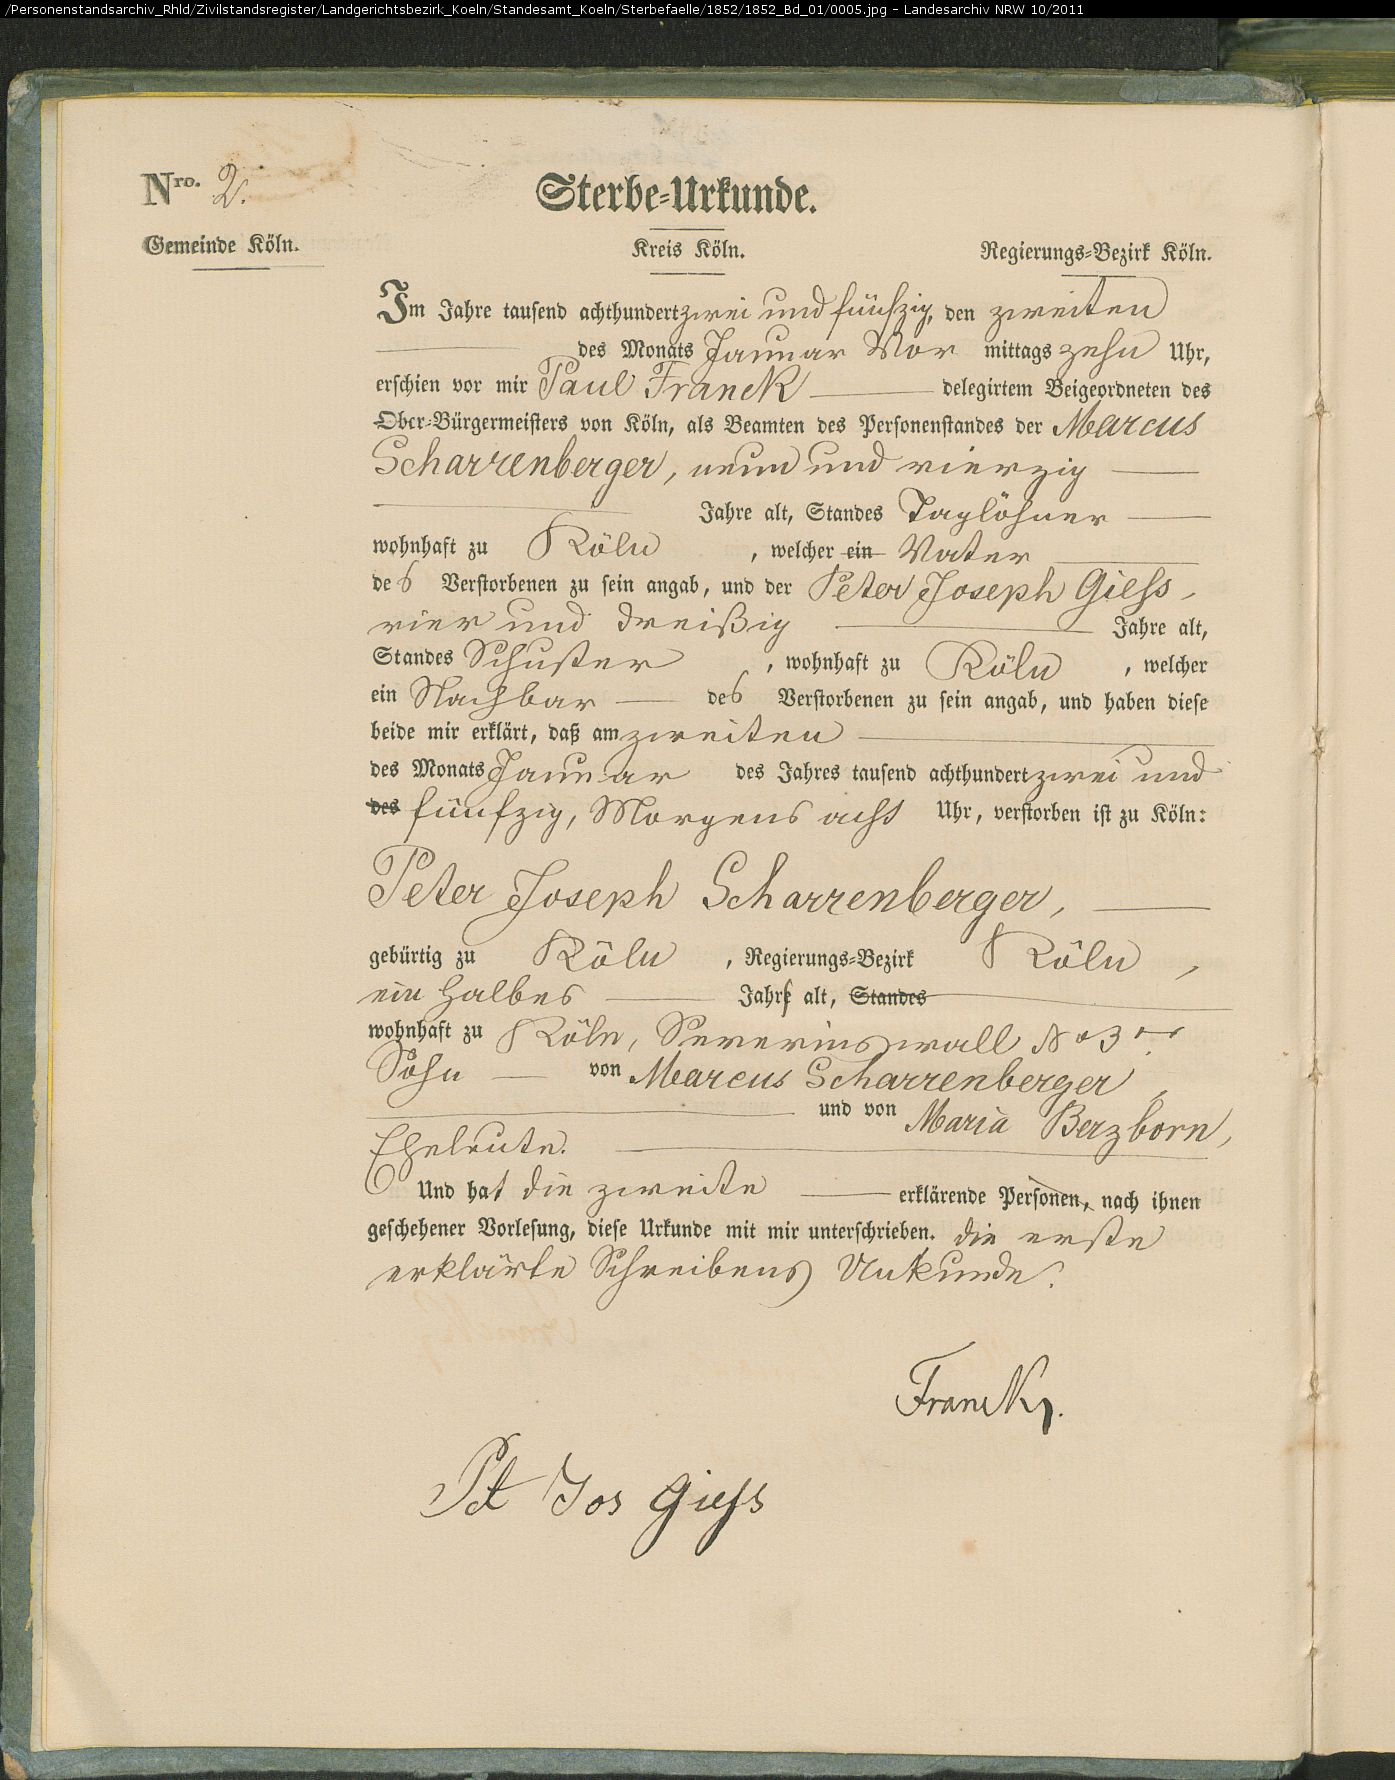 /Personenstandsarchiv_Rhld/Zivilstandsregister/Landgerichtsbezirk_Koeln/Standesamt_Koeln/Sterbefaelle/1852/1852_Bd_01/0005.jpg - Landesarchiv NRW 10/2011
Nro. 2.
Sterbe-Urkunde.
Gemeinde Köln. Kreis Köln. Regierungs-Bezirk Köln.
Im Jahre tausend achthundert zwei und fünfzig, den zweiten
des Monats Januar Vor mittags zehn Uhr,
erschien vor mir Paul Franck delegirtem Beigeordneten des
Ober-Bürgermeisters von Köln, als Beamten des Personenstandes der Marcus
Scharrenberger, neun und vierzig
Jahre alt, Standes Taglöhner
wohnhaft zu Köln, welcher ein Vater
des Verstorbenen zu sein angab, und der Peter Joseph Giess,
vier und dreißig Jahre alt,
Standes Schuster, wohnhaft zu Köln, welcher
ein Nachbar des Verstorbenen zu sein angab, und haben diese
beide mir erklärt, daß am zweiten
des Monats Januar des Jahres tausend achthundert zwei und
des fünfzig, Morgens acht Uhr, verstorben ist zu Köln:
Peter Joseph Scharrenberger,
gebürtig zu Köln, Regierungs-Bezirk Köln,
ein halbes Jahr alt, Standes
wohnhaft zu Köln, Severinswall No 3
Sohn von Marcus Scharrenberger,
und von Maria Berzborn,
Eheleute.
Und hat die zweite erklärende Personen, nach ihnen
geschehener Vorlesung, diese Urkunde mit mir unterschrieben. die erste
erklärte Schreibens Unkunde.
Franck
Pt Jos Giess